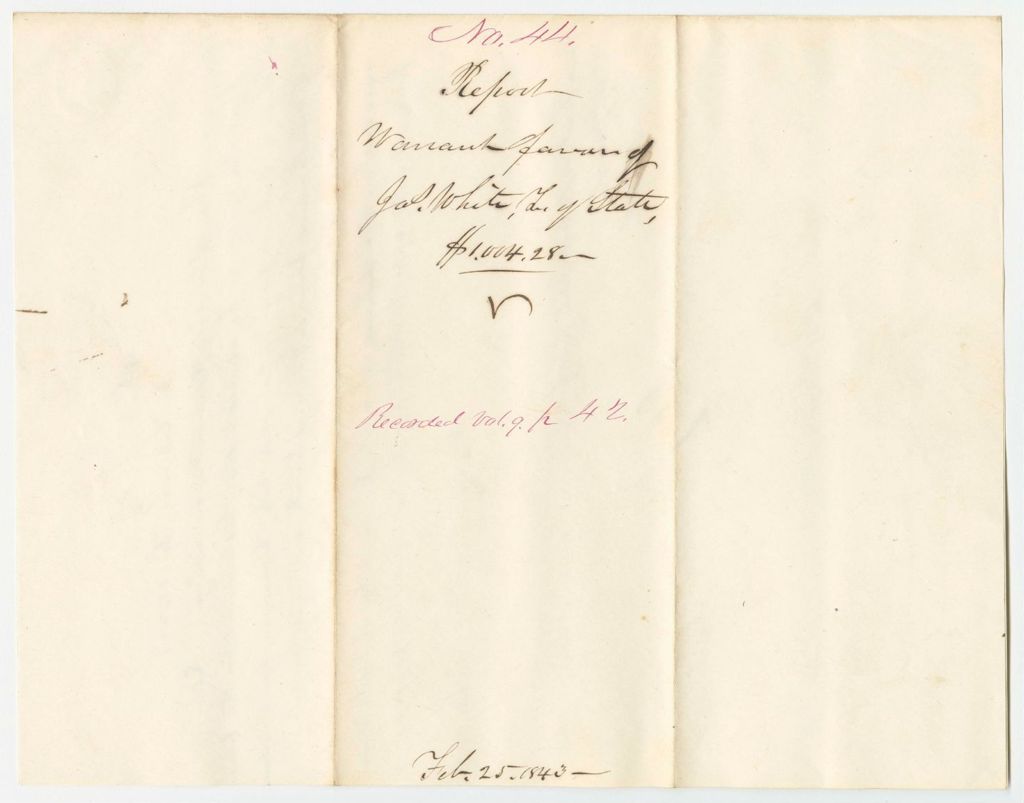 No. 44.
Report
Warrant favour of
Jas. White, Tr. of State,
$1,004.28
Recorded Vol. 9. p 42.
Feb. 25. 1843